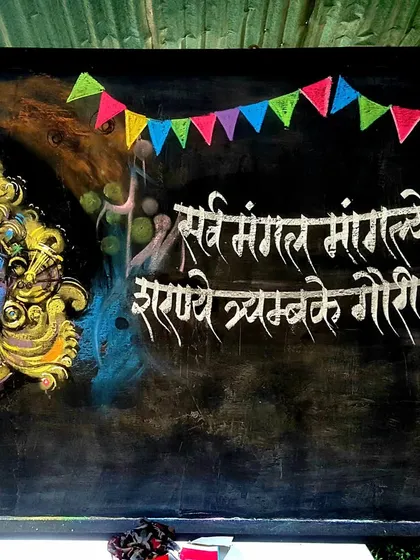 सर्व मंगल मांगल्ये
शरण्ये त्र्यम्बके गौरी